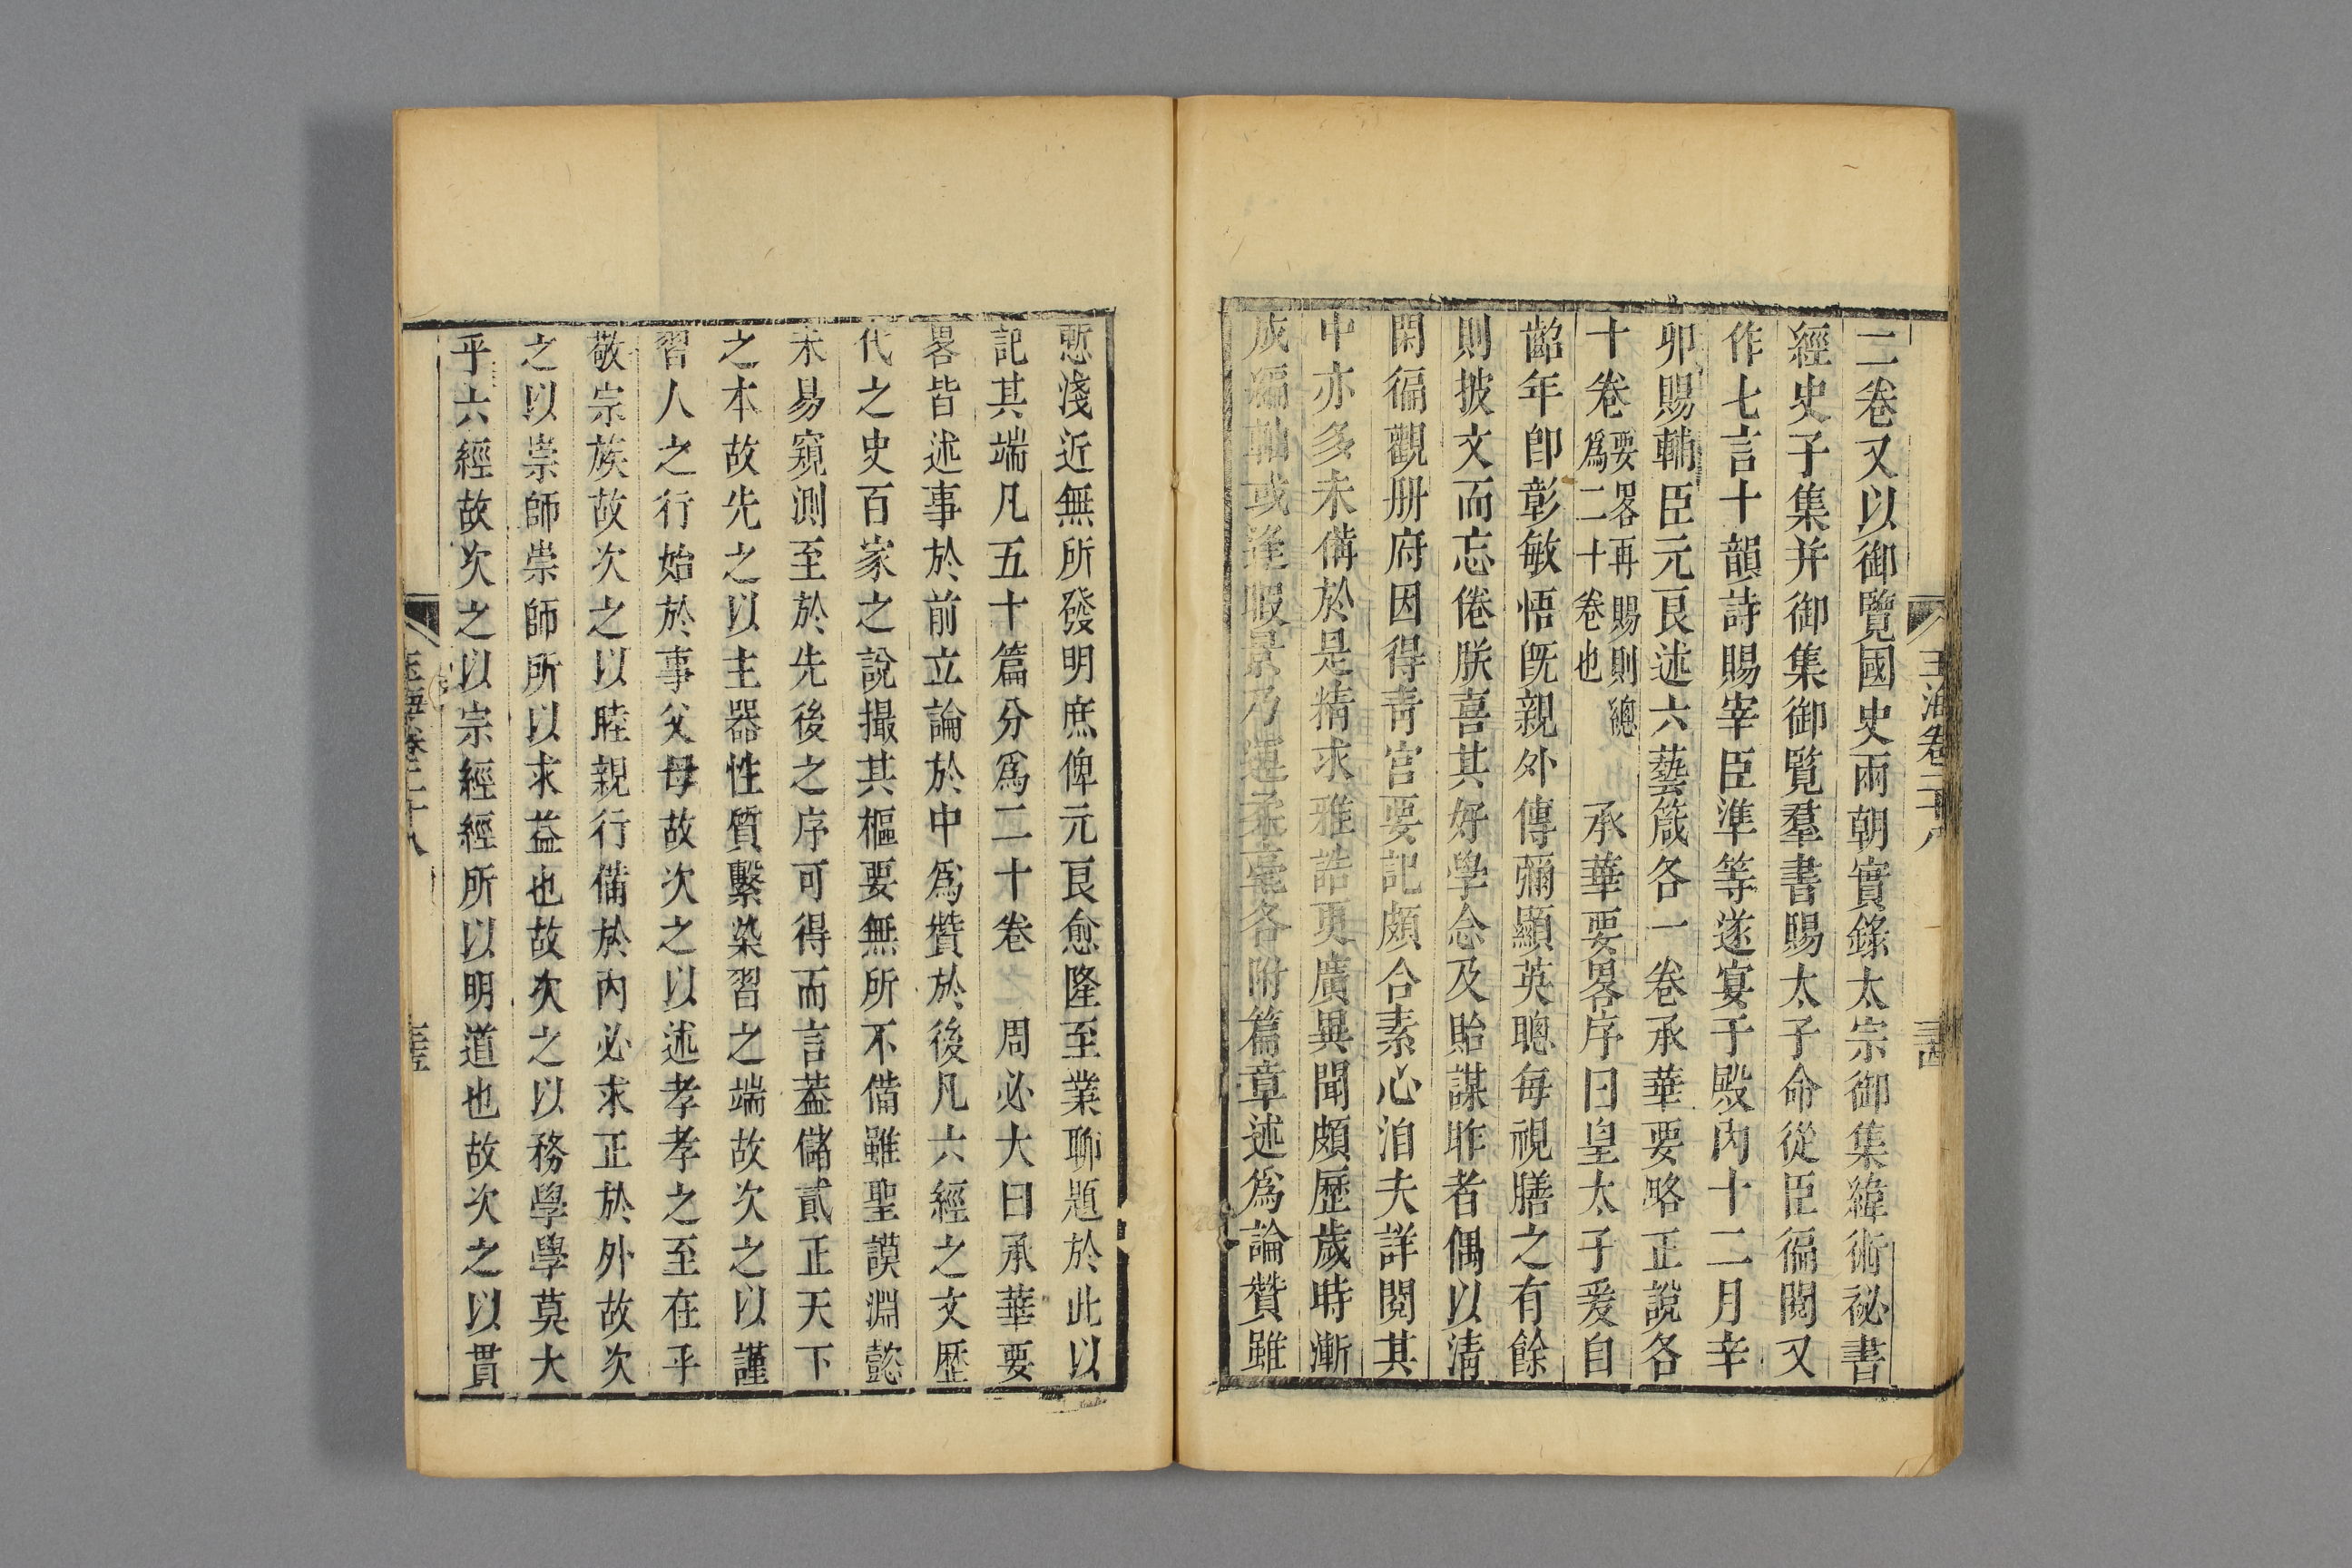 玉海卷二十八
三十四
二卷又以御覽國史兩朝實錄太宗御集緯術祕書
經史子集并御集御覽羣書賜太子命從臣徧閱又
作七言十韻詩賜宰臣準等遂宴于殿內十二月辛
卯賜輔臣元良述六藝箴各一卷承華要略正說各
十卷要畧再賜則總為二十卷也承華要畧序曰皇太子爰自
齠年卽彰敏悟旣親外傳彌顯英聰每視膳之有餘
則披文而忘倦朕喜其好學念及貽謀昨者偶以清
閑徧觀册府因得靑宮要記頗合素心洎夫詳閱其
中亦多未備於是精求雅誥更廣異聞頗歷歲時漸
成編軸或逢暇景乃運柔毫各附篇章述爲論贊雖
慙淺近無所發明庶俾元良愈隆至業聊題於此以
記其端凡五十篇分爲二十卷 周必大曰承華要
畧皆述事於前立論於中爲贊於後凡六經之文歷
代之史百家之說撮其樞要無所不備雖聖謨淵懿
未易窺測至於先後之序可得而言蓋儲貳正天下
之本故先之以主器性質繫染習之端故次之以謹
習人之行始於事父母故次之以述孝孝之至在乎
敬宗族故次之以睦親行備於內必求正於外故次
之以崇師崇師所以求益也故次之以務學學莫大
乎六經故次之以宗經經所以明道也故次之以貫
玉海卷二十八
三十五